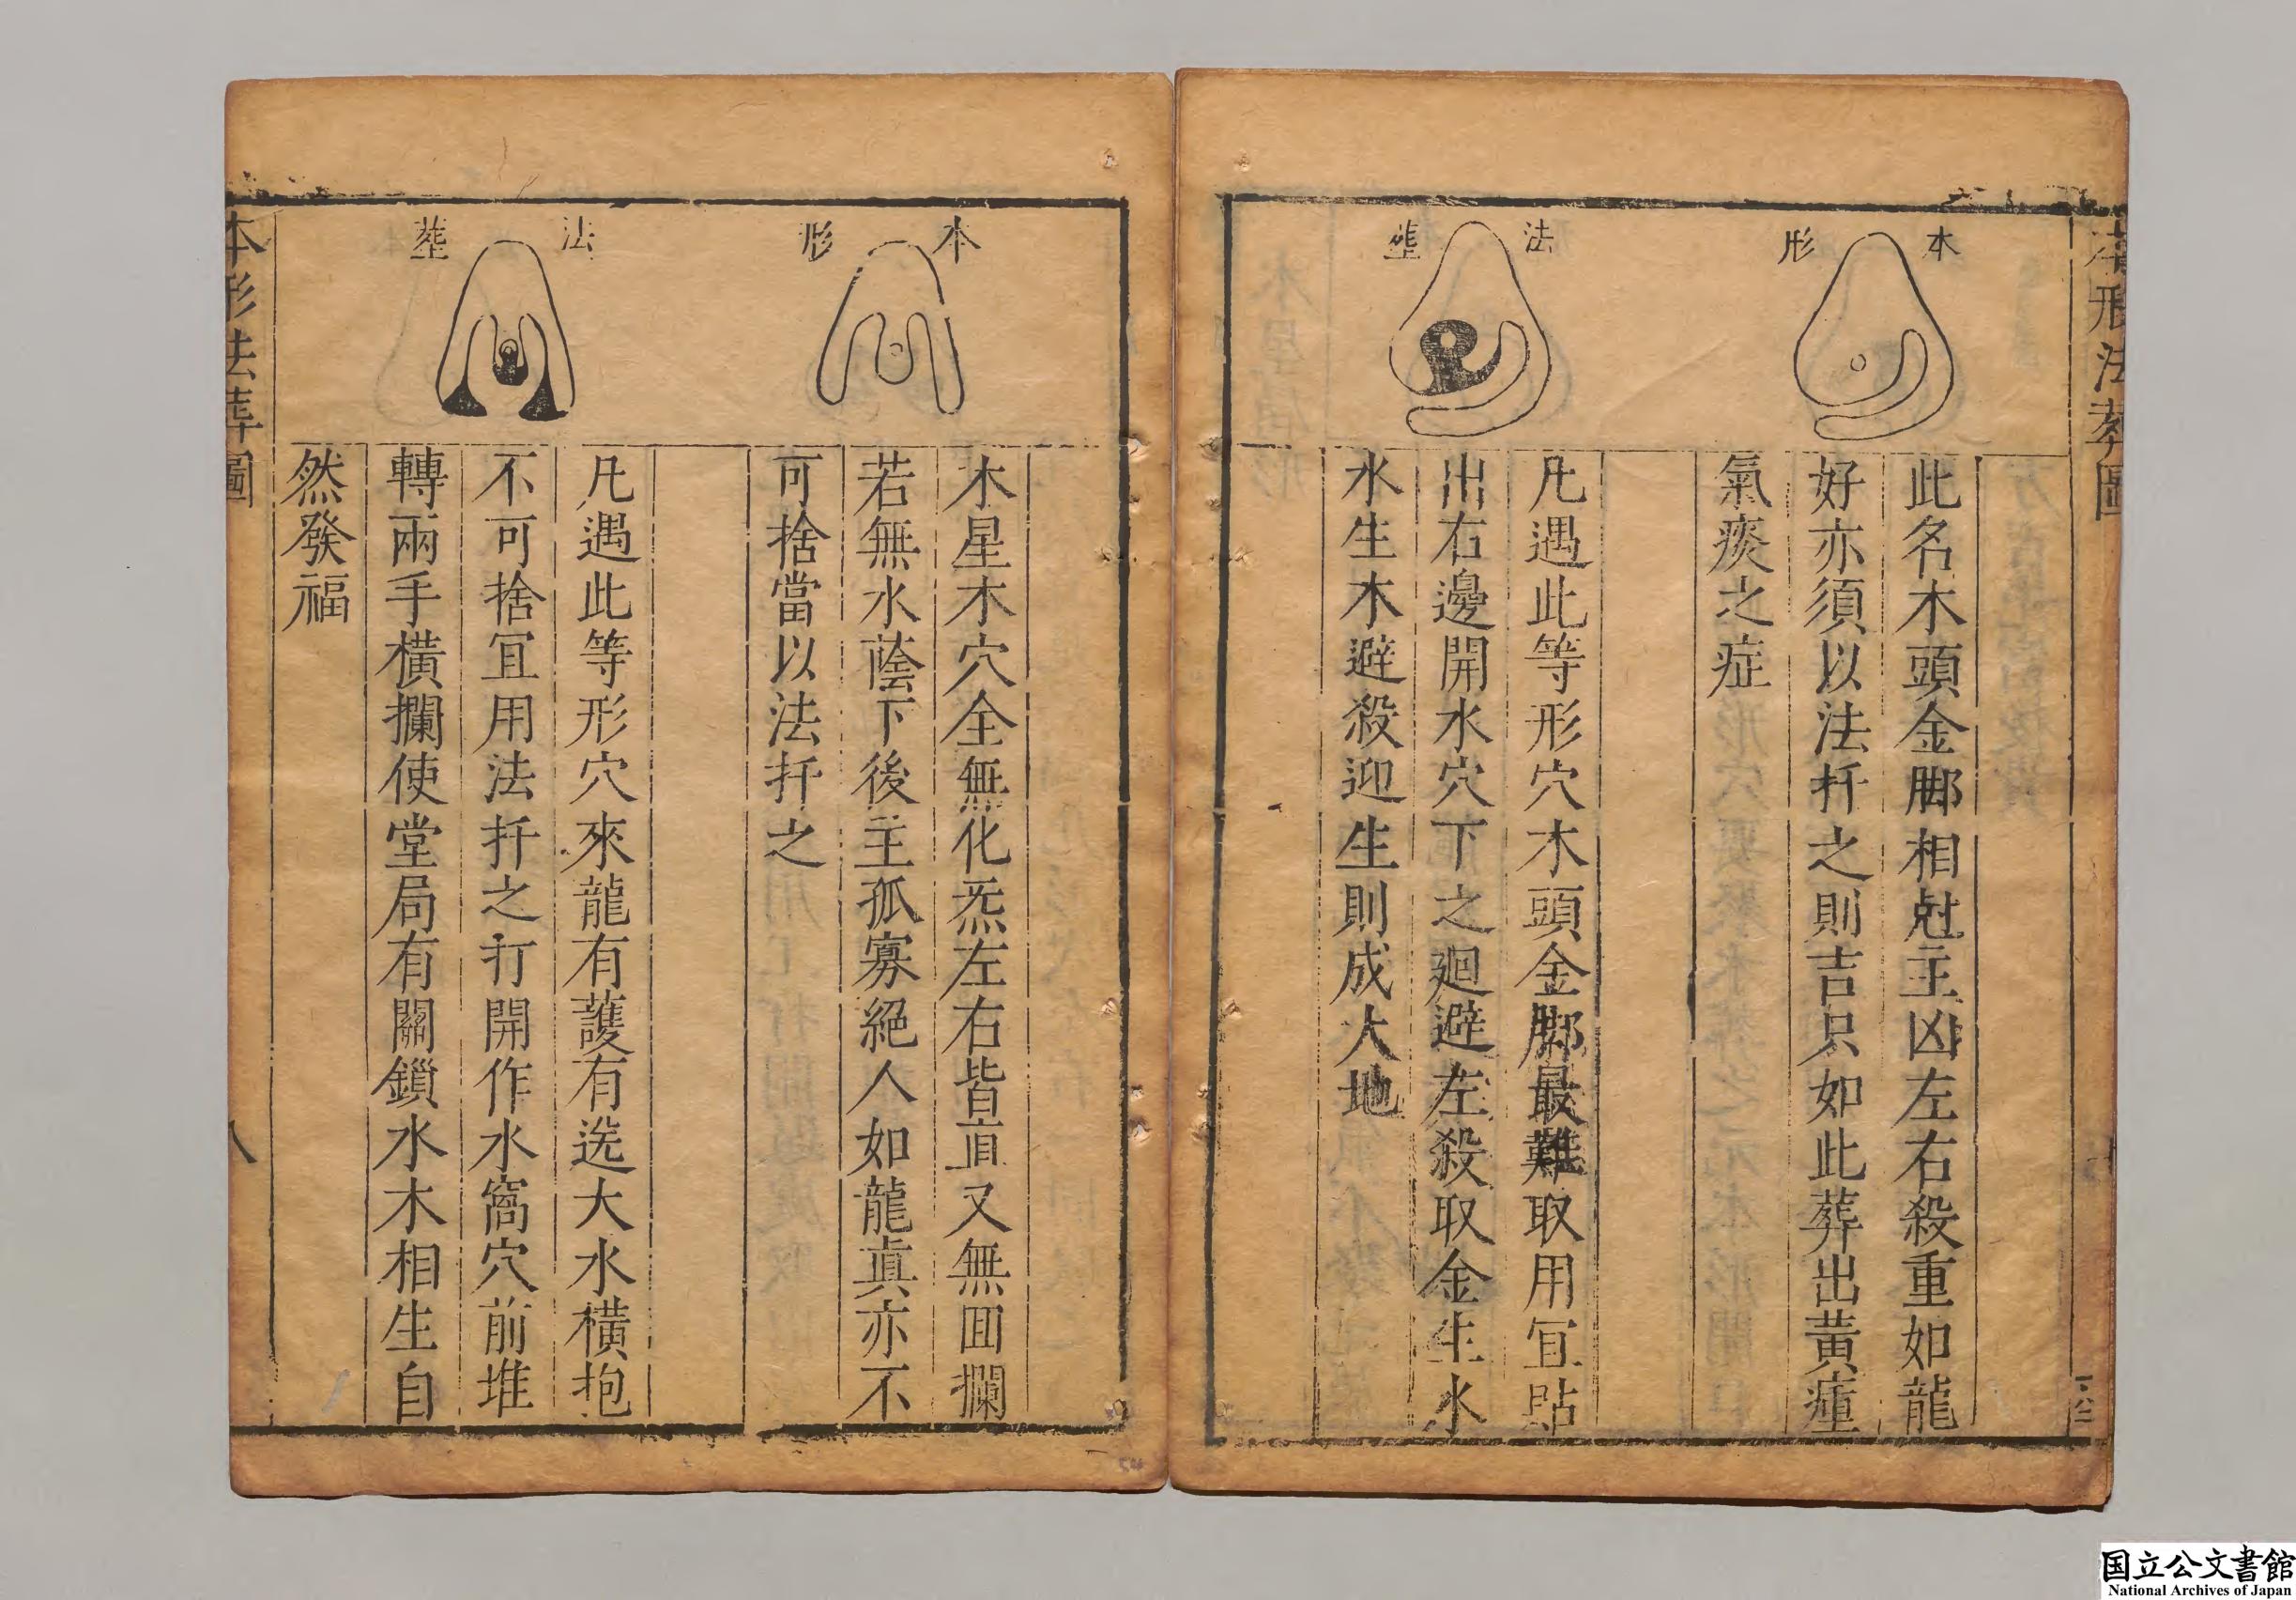 本形法葬圖
本形
法塟
此名木頭金脚相尅主凶左右殺重如龍
好亦須以法扦之則吉只如此葬出黃瘇
氣痰之症
凢遇此等形穴木頭金脚最難取用冝貼
出右邊開水穴下之廻避左殺取金生水
水生木避殺迎生則成大地
本形
法塟
木星木穴全無化炁左右皆直又無回攔
若無水蔭下後主孤寡絕人如龍真亦不
可捨當以法扦之
凢遇此等形穴來龍有護有送大水橫抱
不可捨冝用法扦之打開作水窩穴前堆
轉兩手橫攔使堂局有關鎖水木相生自
然發福
本形法葬圖
八
国立公文書館
National Archives of Japan